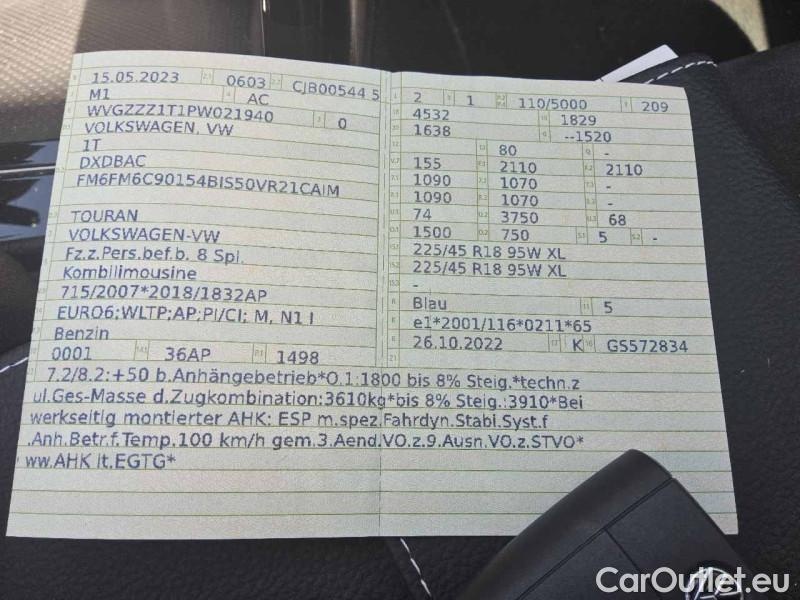 15.05.2023 0603 CJB00544 5
M1 AC
WVGZZZ1T1PW021940 0
VOLKSWAGEN, VW
1T
DXDBAC
FM6FM6C90154BIS50VR21CAIM
TOURAN
VOLKSWAGEN-VW
Fz.z.Pers.bef.b. 8 Spl.
Kombilimousine
715/2007*2018/1832AP
EURO6;WLTP;AP;PI/CI; M, N1 I
Benzin
0001 36AP 1498
2 1 110/5000 209
4532 1829
1638 --1520
80 -
155 2110 2110
1090 1070 -
1090 1070 -
74 3750 68
1500 750 5 -
225/45 R18 95W XL
225/45 R18 95W XL
-
Blau 5
e1*2001/116*0211*65
26.10.2022 K GS572834
7.2/8.2:+50 b.Anhängebetrieb*O.1:1800 bis 8% Steig.*techn.z
ul.Ges-Masse d.Zugkombination:3610kg*bis 8% Steig.:3910*Bei
werkseitig montierter AHK: ESP m.spez.Fahrdyn.Stabi.Syst.f
.Anh.Betr.f.Temp.100 km/h gem.3.Aend.VO.z.9.Ausn.VO.z.STVO*
ww.AHK lt.EGTG*
CarOutlet.eu